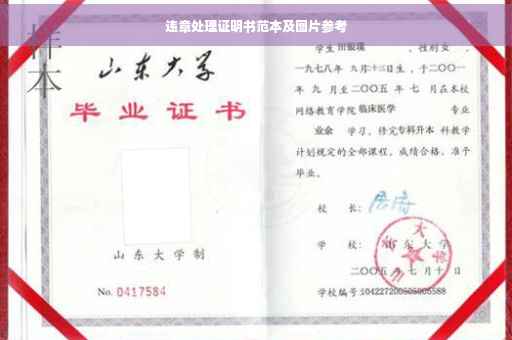 违章处理证明书范本及图片参考
样本
山东大学
毕业证书
山东大学制
No. 0417584
学生田毓瑛，性别女，
一九七八年九月十三日生，于二〇〇一
年九月至二〇〇五年七月在本校
网络教育学院临床医学专业
业余学习，修完专科升本科教学
计划规定的全部课程，成绩合格，准予
毕业。
校长：
学校：山东大学
二〇〇五年七月十日
学校编号:104227200505005588